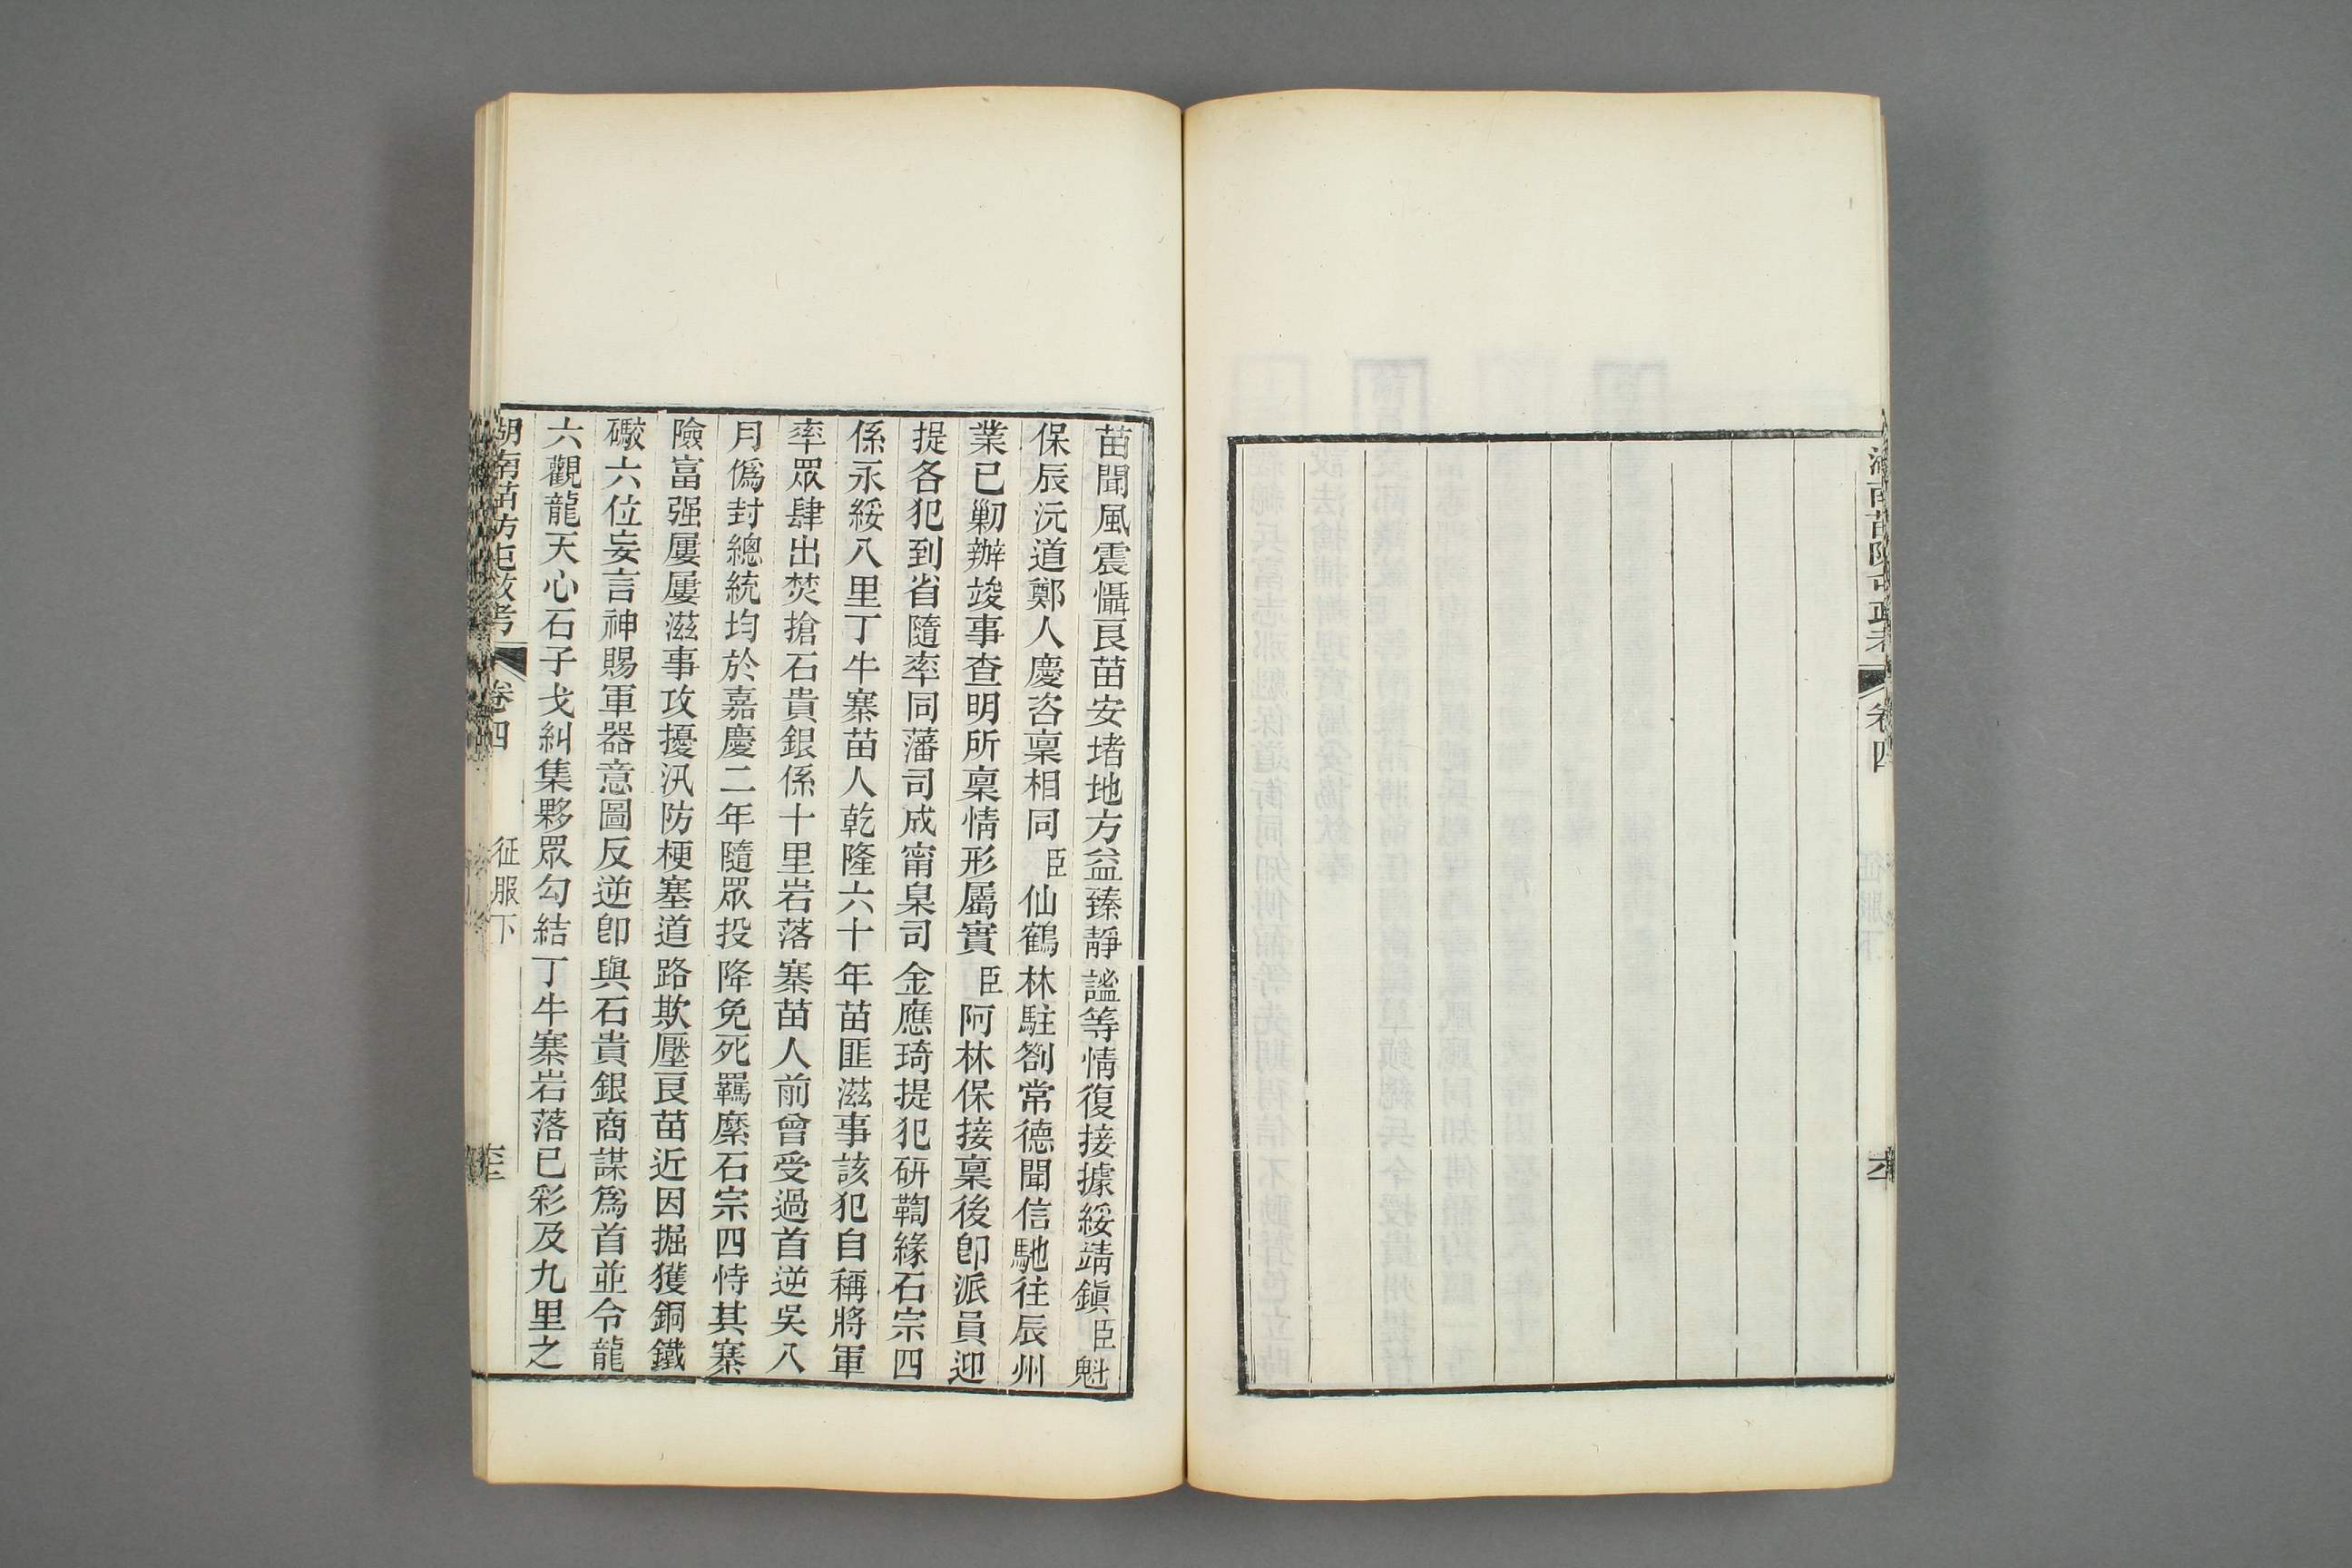 湖南苗防屯政考
卷四
苗聞風震懾良苗安堵地方益臻靜謐等情復接據綏靖鎭臣魁
保辰沅道鄭人慶咨稟相同臣仙鶴林駐劄常德聞信馳往辰州
業已剿辦竣事查明所稟情形屬實臣阿林保接稟後卽派員迎
提各犯到省隨率同藩司成甯臬司金應琦提犯研鞫緣石宗四
係永綏八里丁牛寨苗人乾隆六十年苗匪滋事該犯自稱將軍
率眾肆出焚搶石貴銀係十里岩落寨苗人前曾受過首逆吳八
月僞封總統均於嘉慶二年隨眾投降免死羈縻石宗四恃其寨
險富强屢屢滋事攻擾汛防梗塞道路欺壓良苗近因掘獲銅鐵
礮六位妄言神賜軍器意圖反逆卽與石貴銀商謀爲首並令龍
六觀龍天心石子戈糾集夥眾勾結丁牛寨岩落己彩及九里之
湖南苗防屯政考
卷四
征服下